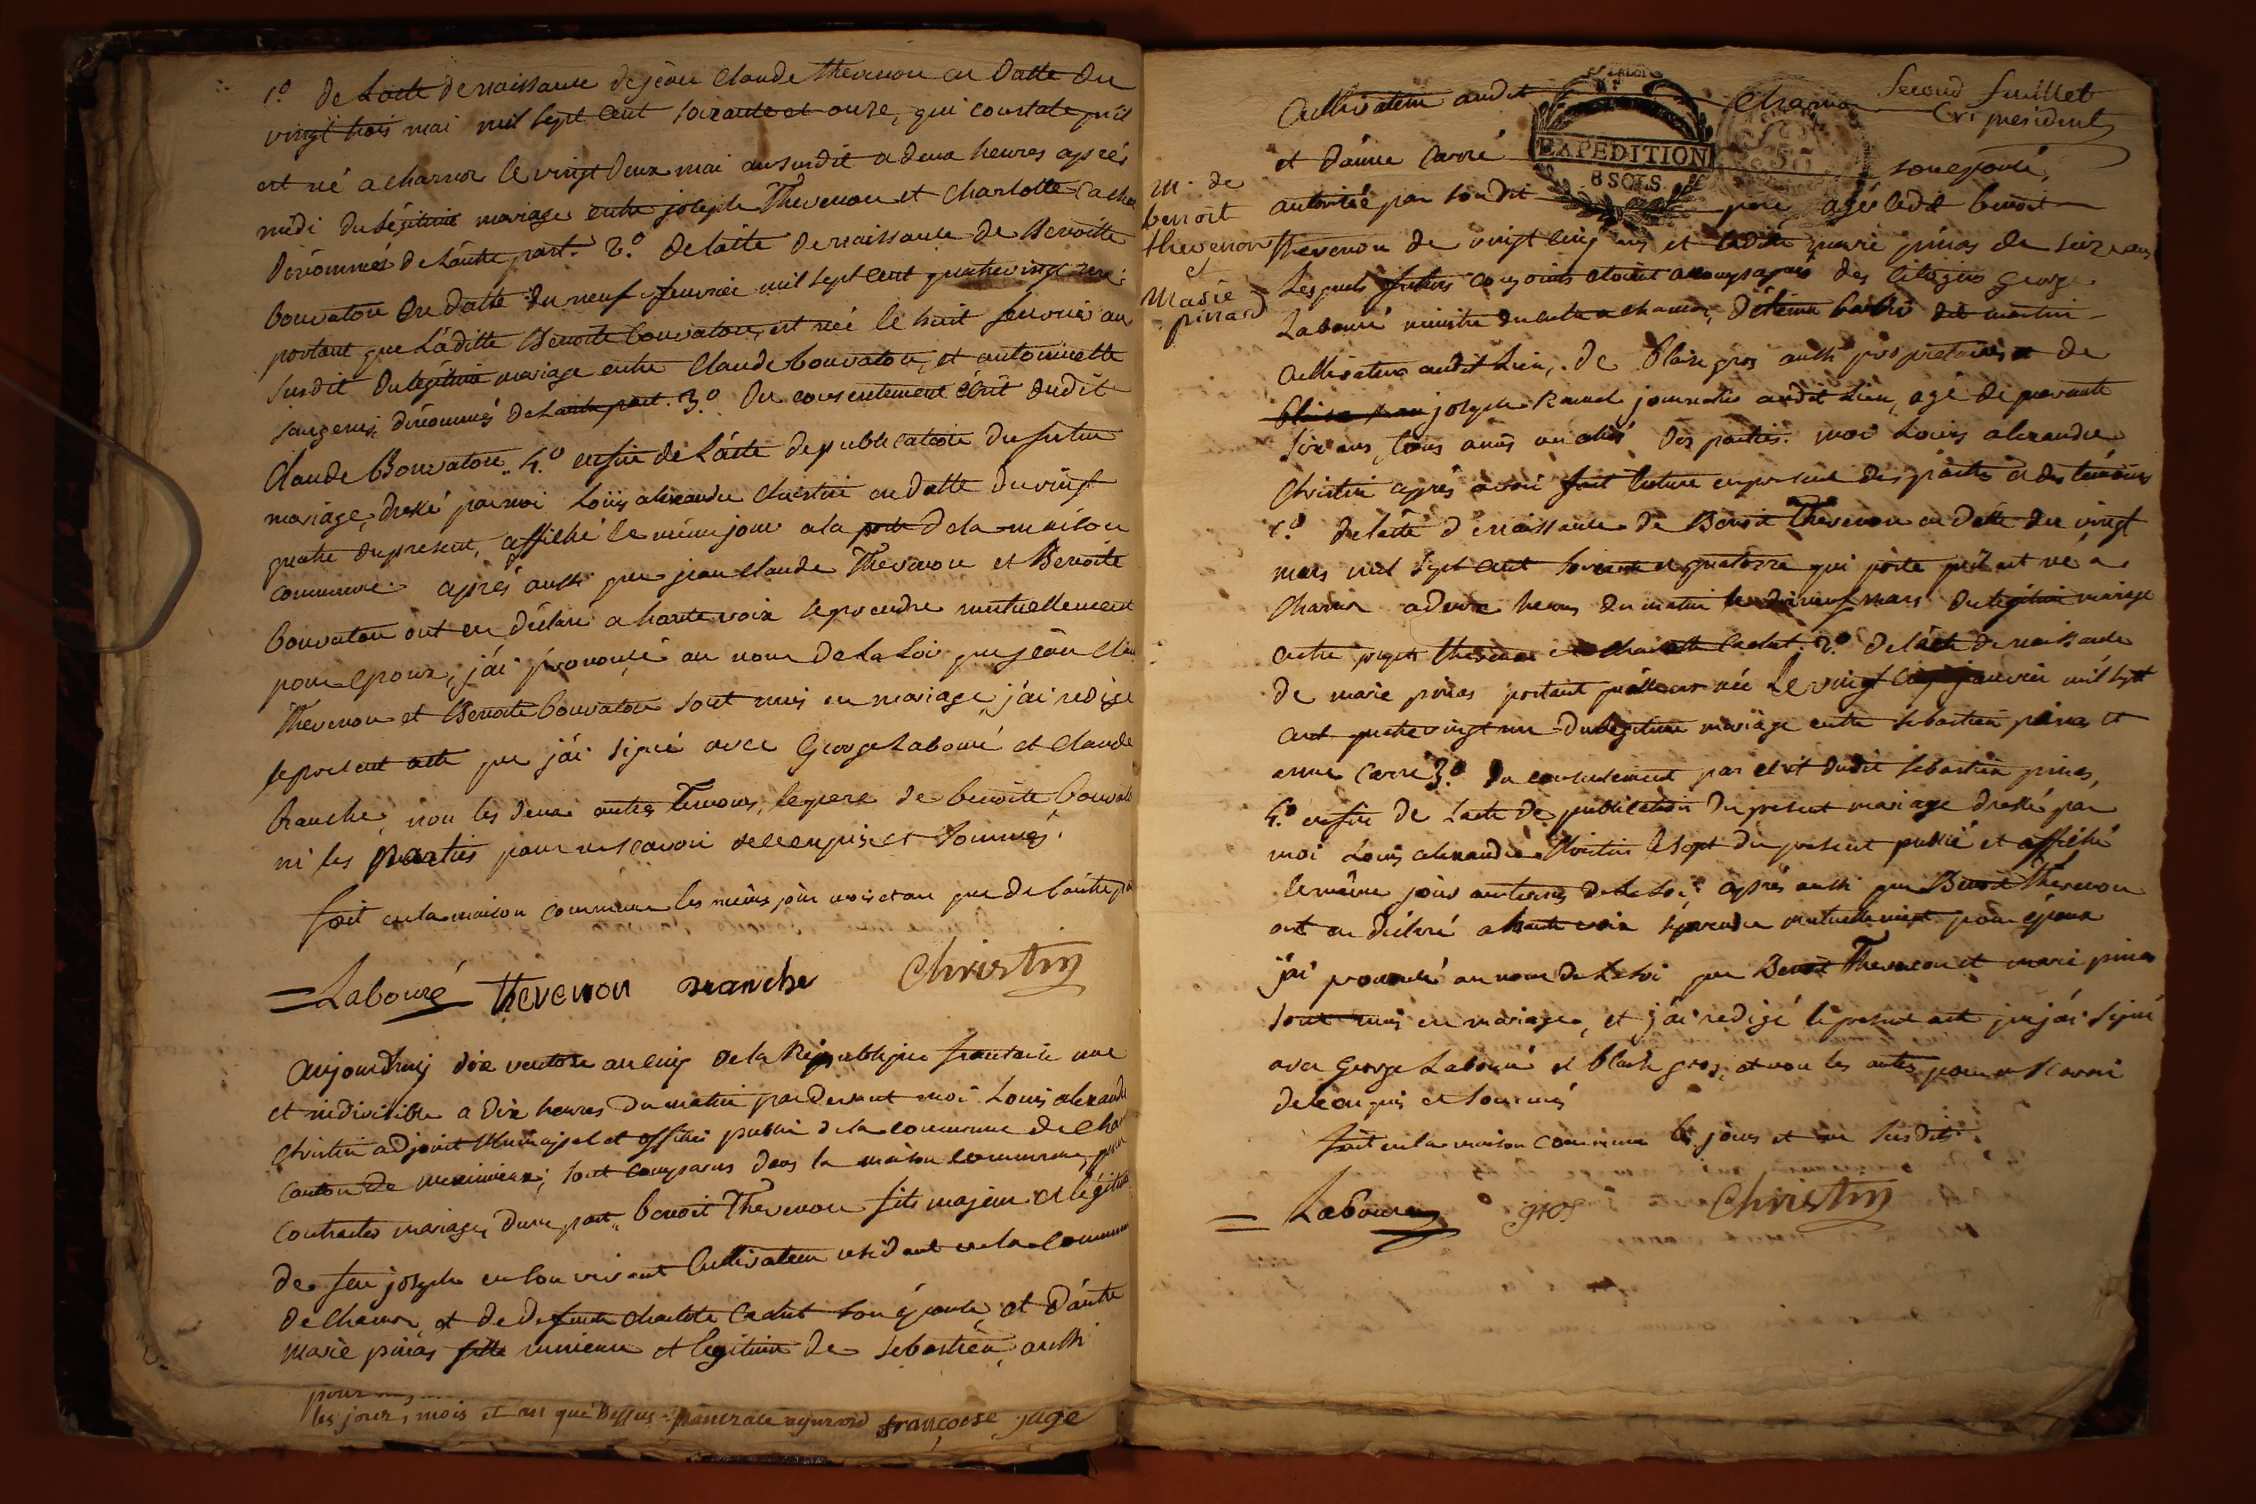 1.º de Lacte de naissance de jean Claude thevenon en datte du
vingt trois mai mil sept cent soixante et onze, qui constate qu'il
est né a charnoz le vingt deux mai au susdit a deux heures après
midi du légitime mariage entre joseph Thevenon et Charlotte Cachet
dénommés de L'autre part. 2.º de l'acte de naissance de Benoitte
bouvaton en datte du neuf fevrier mil sept cent quatre vingt
portant que Laditte Benoite bouvaton, est née le huit fevrier au
susdit du légitime mariage entre Claude bouvaton, et antoinette
dénommés de L'autre part. 3.º du consentement écrit dudit
Claude Bouvaton. 4.º enfin de L'acte de publication du futur
mariage, dressé par moi Louis alexandre Christin en datte du vingt
quatre du present, affiché le même jour a la porte de la maison
commune. après aussi que jean Claude Thevenon et Benoite
bouvaton ont eu déclaré a haute voix se prendre mutuellement
pour epoux, j'ai prononcé au nom de La Loi que jean Clau
Thevenon et Benoite bouvaton sont unis en mariage, j'ai redigé
le present acte que j'ai signé avec George Labouré et Claude
branche, non les deux autres temoins, le pere de benoite bouvato
ni les parties pour ne scavoir de ce enquis et sommés.
fait en la maison commune les mêmes jour mois et an que de l'autre pa
Labouré thevenon branche Christin
aujourdhuy dix ventose an cinq de la République francaise une
et indivisible a dix heures du matin par devant moi Louis alexandre
Christin adjoint Municipal et officier public de la commune de Char
canton de meximieux; sont comparus dans la maison commune, pour
contracter mariage, d'une part, benoit Thevenon fils majeur et légitime
de feu joseph en son vivant Cultivateur residant en la commune
de Charnoz, et de defunte charlotte Cachet son épouse, et d'autre
marie pinas fille mineure et legitime de sebastien, aussi
pour
les jour, mois et an que Dessus françoise juge
Second feuillet
Cri president
Charnoz
EXPEDITION
8 SOLS
m. de
benoit
thevenon
et
Marie
pinard
Cultivateur audit
et d'anne Carré son epouse,
autorisée par sondit pere agés ledit benoit
Thevenon de vingt cinq ans et ladite marie pinas de seize ans
Lesquels futurs conjoints etoient accompagnés des citoyens george
Labouré ministre du culte a charnoz, d'étienne barbé dit martin
Cultivateur audit Lieu, de blaise gros aussi propriétaire et de
joseph journalier audit Lieu, agé de quarante
six ans, tous amis ou alliés des parties. moi Louis alexandre
Christin après avoir fait lecture en presence des parties et des témoins
1.º de l'acte de naissance de Benoit Thevenon en datte du vingt
mars mil sept cent soixante et quatorze qui porte qu'il est né a
Charnoz a deux heures du matin le dix neuf mars du légitime mariage
entre joseph thevenon et charlotte Cachet. 2.º de l'acte de naissance
de marie pinas portant qu'elle est née Le vingt cinq janvier mil sept
cent quatre vingt un du légitime mariage entre sebastien pinas et
anne Carré 3.º du consentement par ecrit dudit sebastien pinas,
4.º enfin de l'acte de publication du present mariage dressé par
moi Louis alexandre Christin le sept du present publié et affiché
le même jour au termes de la Loi. après aussi que Benoit Thevenon
ont eu déclaré a haute voix se prendre mutuellement pour époux
j'ai prononcé au nom de la Loi que Benoit Thevenon et marie pinas
sont unis en mariage, et j'ai redigé le present acte que j'ai signé
avec George Labouré et blaise gros, et non les autres pour ne scavoir
de ce enquis et sommés
fait en la maison commune les jours et an susdit
Labouré gros Christin